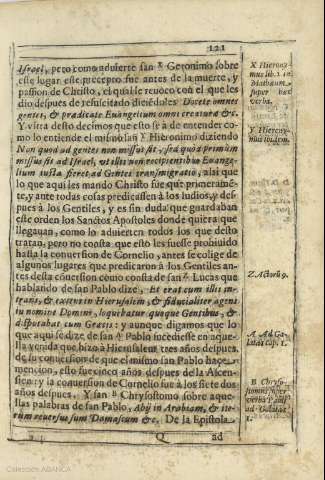 121
Israel, pero como aduierte san X Geronimo sobre
este lugar este precepto fue antes de la muerte, y
passion de Christo, el qual le reuocò con el que les
dio despues de resuscitado diciẽdoles Docete omnes
gentes, & prædicate Euangelium omni creaturæ &c.
Y vltra desto decimos que esto se à de entender co-
mo lo entiende el mismo san Y Hieronimo diziendo
Non quod ad gentes non missus sit, sed quod primum
missus sit ad Israel, vt illis non recipientibus Euange-
lium iusta fieret ad Gentes transmigratio, assi que
lo que aqui les mando Christo fue que primeramẽ-
te, y ante todas cosas predicassen à los Iudios, y des-
pues à los Gentiles, y es sin duda que guardaban
este orden los Sanctos Apostoles donde quiera que
llegauan, como lo aduierten todos los que desto
tratan, pero no consta que esto les fuesse prohiuido
hasta la conuersion de Cornelio, antes se colige de
algunos lugares que predicaron à los Gentiles an-
tes desta cõuersion como consta de san Z Lucas que
hablando de san Pablo dize, Et erat cum illis in-
trans, & exiens in Hierusalem, & fiducialiter agens
in nomine Domini, loquebatur quoque Gentibus, &
disputabat cum Græcis: y aunque digamos que lo
que aqui se dize de san A Pablo sucediesse en aque-
lla venida que hizo à Hierusalem tres años despues
de su conuersion de que el mismo san Pablo haze
mencion, esto fue cinco años despues de la Ascen-
sion: y la conuersion de Cornelio fue à los siete dos
años despues. Y san B Chrysostomo sobre aque-
llas palabras de san Pablo, Abij in Arabiam, & ite-
rum reuersus sum Damascum &c. De la Epistola
Q ad
X Hierony-
mus lib. 1. in
Mathæum
super hæc
verba.
Y. Hierony-
mus ibidem.
Z. Actorũ 9.
A. Ad Ga-
latas cap. 1.
B Chryso-
stomus super
verba Pauli
ad Galatas
1.
Colección ABANCA